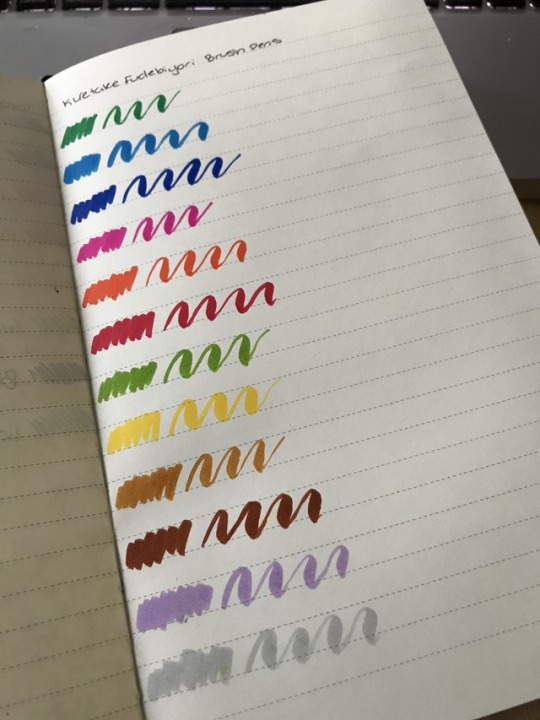 Kuretake Fudebiyori Brush Pens